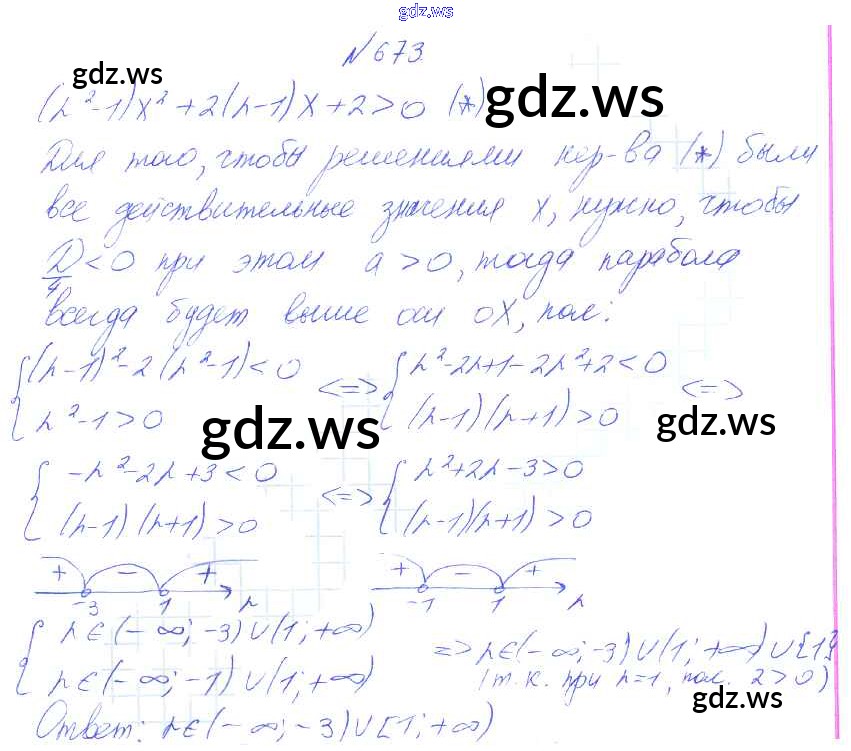 gdz.ws
N 673.
gdz.ws
(r²-1)x²+2(r-1)x+2>0 (*)
gdz.ws
Для того, чтобы решениями нер-ва (*) были
все действительные значения x, нужно, чтобы
D/4<0 при этом a>0, тогда парабола
всегда будет выше оси OX, пол:
{(r-1)²-2(r²-1)<0 <=> {r²-2r+1-2r²+2<0 <=>
{r²-1>0 {(r-1)(r+1)>0
gdz.ws gdz.ws
{-r²-2r+3<0 <=> {r²+2r-3>0
{(r-1)(r+1)>0 {(r-1)(r+1)>0
+ - + + - +
-3 1 r -1 1 r
{r∈(-∞;-3)∪(1;+∞) => r∈(-∞;-3)∪(1;+∞)∪{1}
{r∈(-∞;-1)∪(1;+∞) (т.к. при r=1, пол. 2>0)
gdz.ws
Ответ: r∈(-∞;-3)∪[1;+∞)